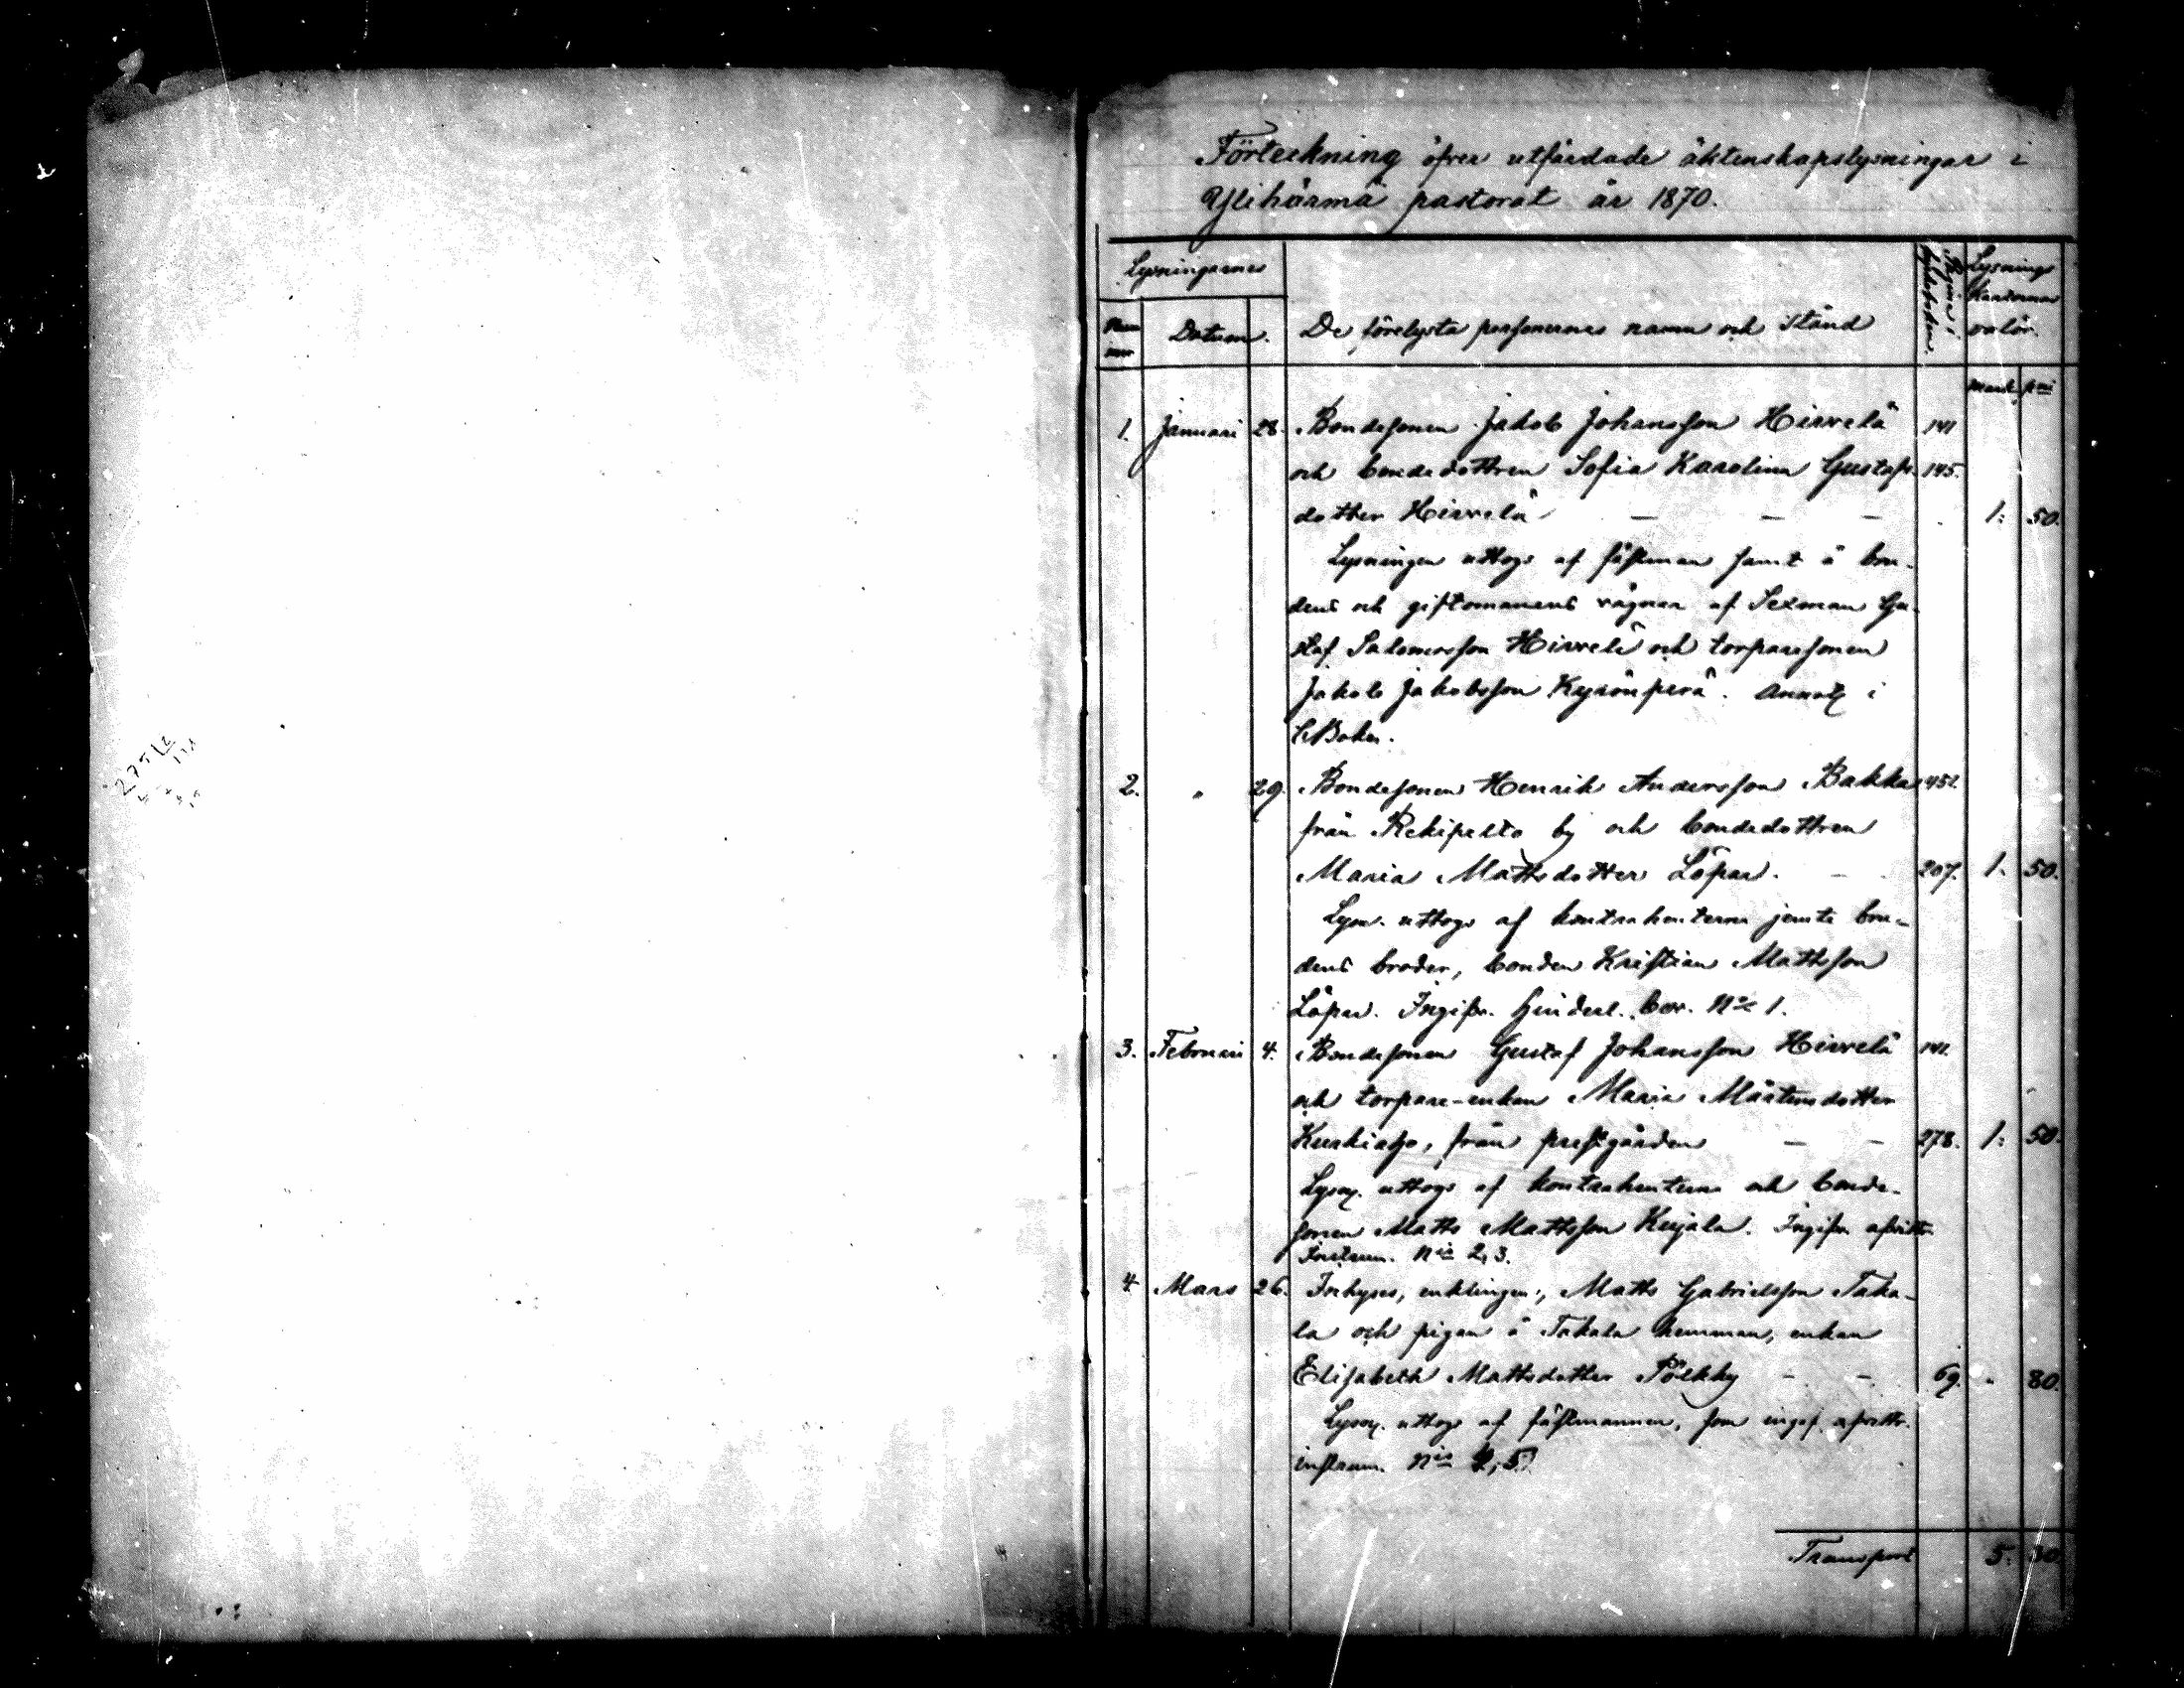 Förteckning öfver utfärdade äktenskapslysningar i
Ylihärmä pastorat år 1870.
Lysningarnes
Num
mer
Datum.
De förelysta personernes namn och stånd
Lysnings
valör.
Mark pni
1. Januari 28. Bondesonen Jakob Johansson Hirvelä 141
och bondedottren Sofia Karolina Gustafs- 145.
dotter Hirvelä — — — 1: 50.
Lysningen uttogs af fästman samt å bru-
dens och giftomanens vägnar af Sexman Gu-
staf Salomonsson Hirvelä och torparesonen
Jakob Jakobsson Kyrönperä. i
2. " 29. Bondesonen Henrik Andersson Bakka 452.
från Rekipelto by och bondedottren
Maria Mattsdotter Löpar. — 207. 1. 50.
Lysn. uttogs af kontrahenterne jemte bru-
dens broder, bonden Kristian Mattsson
Löpar. Ingifv. hinderl. bev. No 1.
3. Februari 4. Bondesonen Gustaf Johansson Hirvelä 141.
och torpare-enkan Maria Mårtensdotter
från prestgården — — 278. 1: 50.
Lysng. uttogs af kontrahenterne och bonde-
sonen Matts Mattsson Kujala. Ingifv. afvittr.
Instrum. Nis 2, 3.
4. Mars 26. Inhyses, enklingen, Matts Gabrielsson Taka-
la och pigan å Takala hemman, enkan
Elisabeth Mattsdotter Pölkky — — 69. " 80.
Lysng. uttogs af fästmannen, som ingaf afvittr.
instrum. Nis 4, 5.
Transport 5. 30.